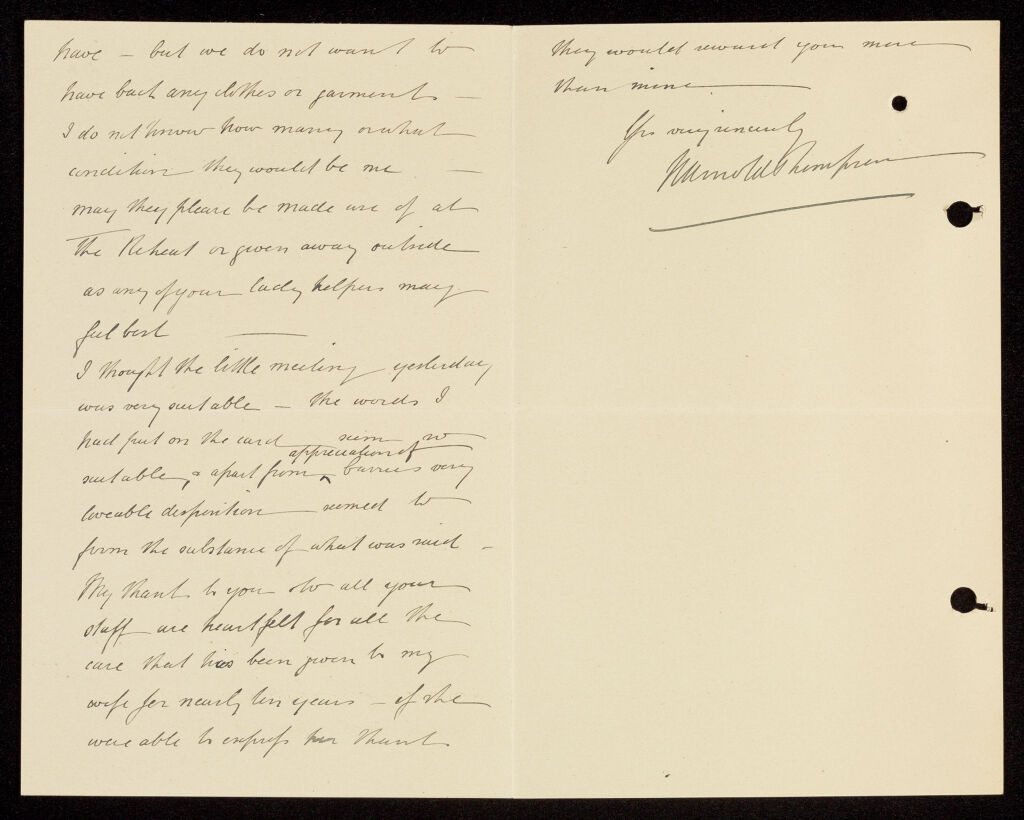 have – but we do not want to
have back any clothes or garments –
I do not know how many or what
condition they would be in –
may they please be made use of at
The Retreat or given away outside
as any of your lady helpers may
feel best —
I thought the little meeting yesterday
was very suitable – the words I
had put on the card seem so
appreciation of
suitable, & apart from ‸ Carries very
loveable disposition seemed to
form the substance of what was said –
My thanks to you & to all your
staff are heartfelt for all the
care that has been given to my
wife for nearly ten years – if she
were able to express her thanks
they would reward you more
than mine
Yrs very sincerely
Arnold Thompson